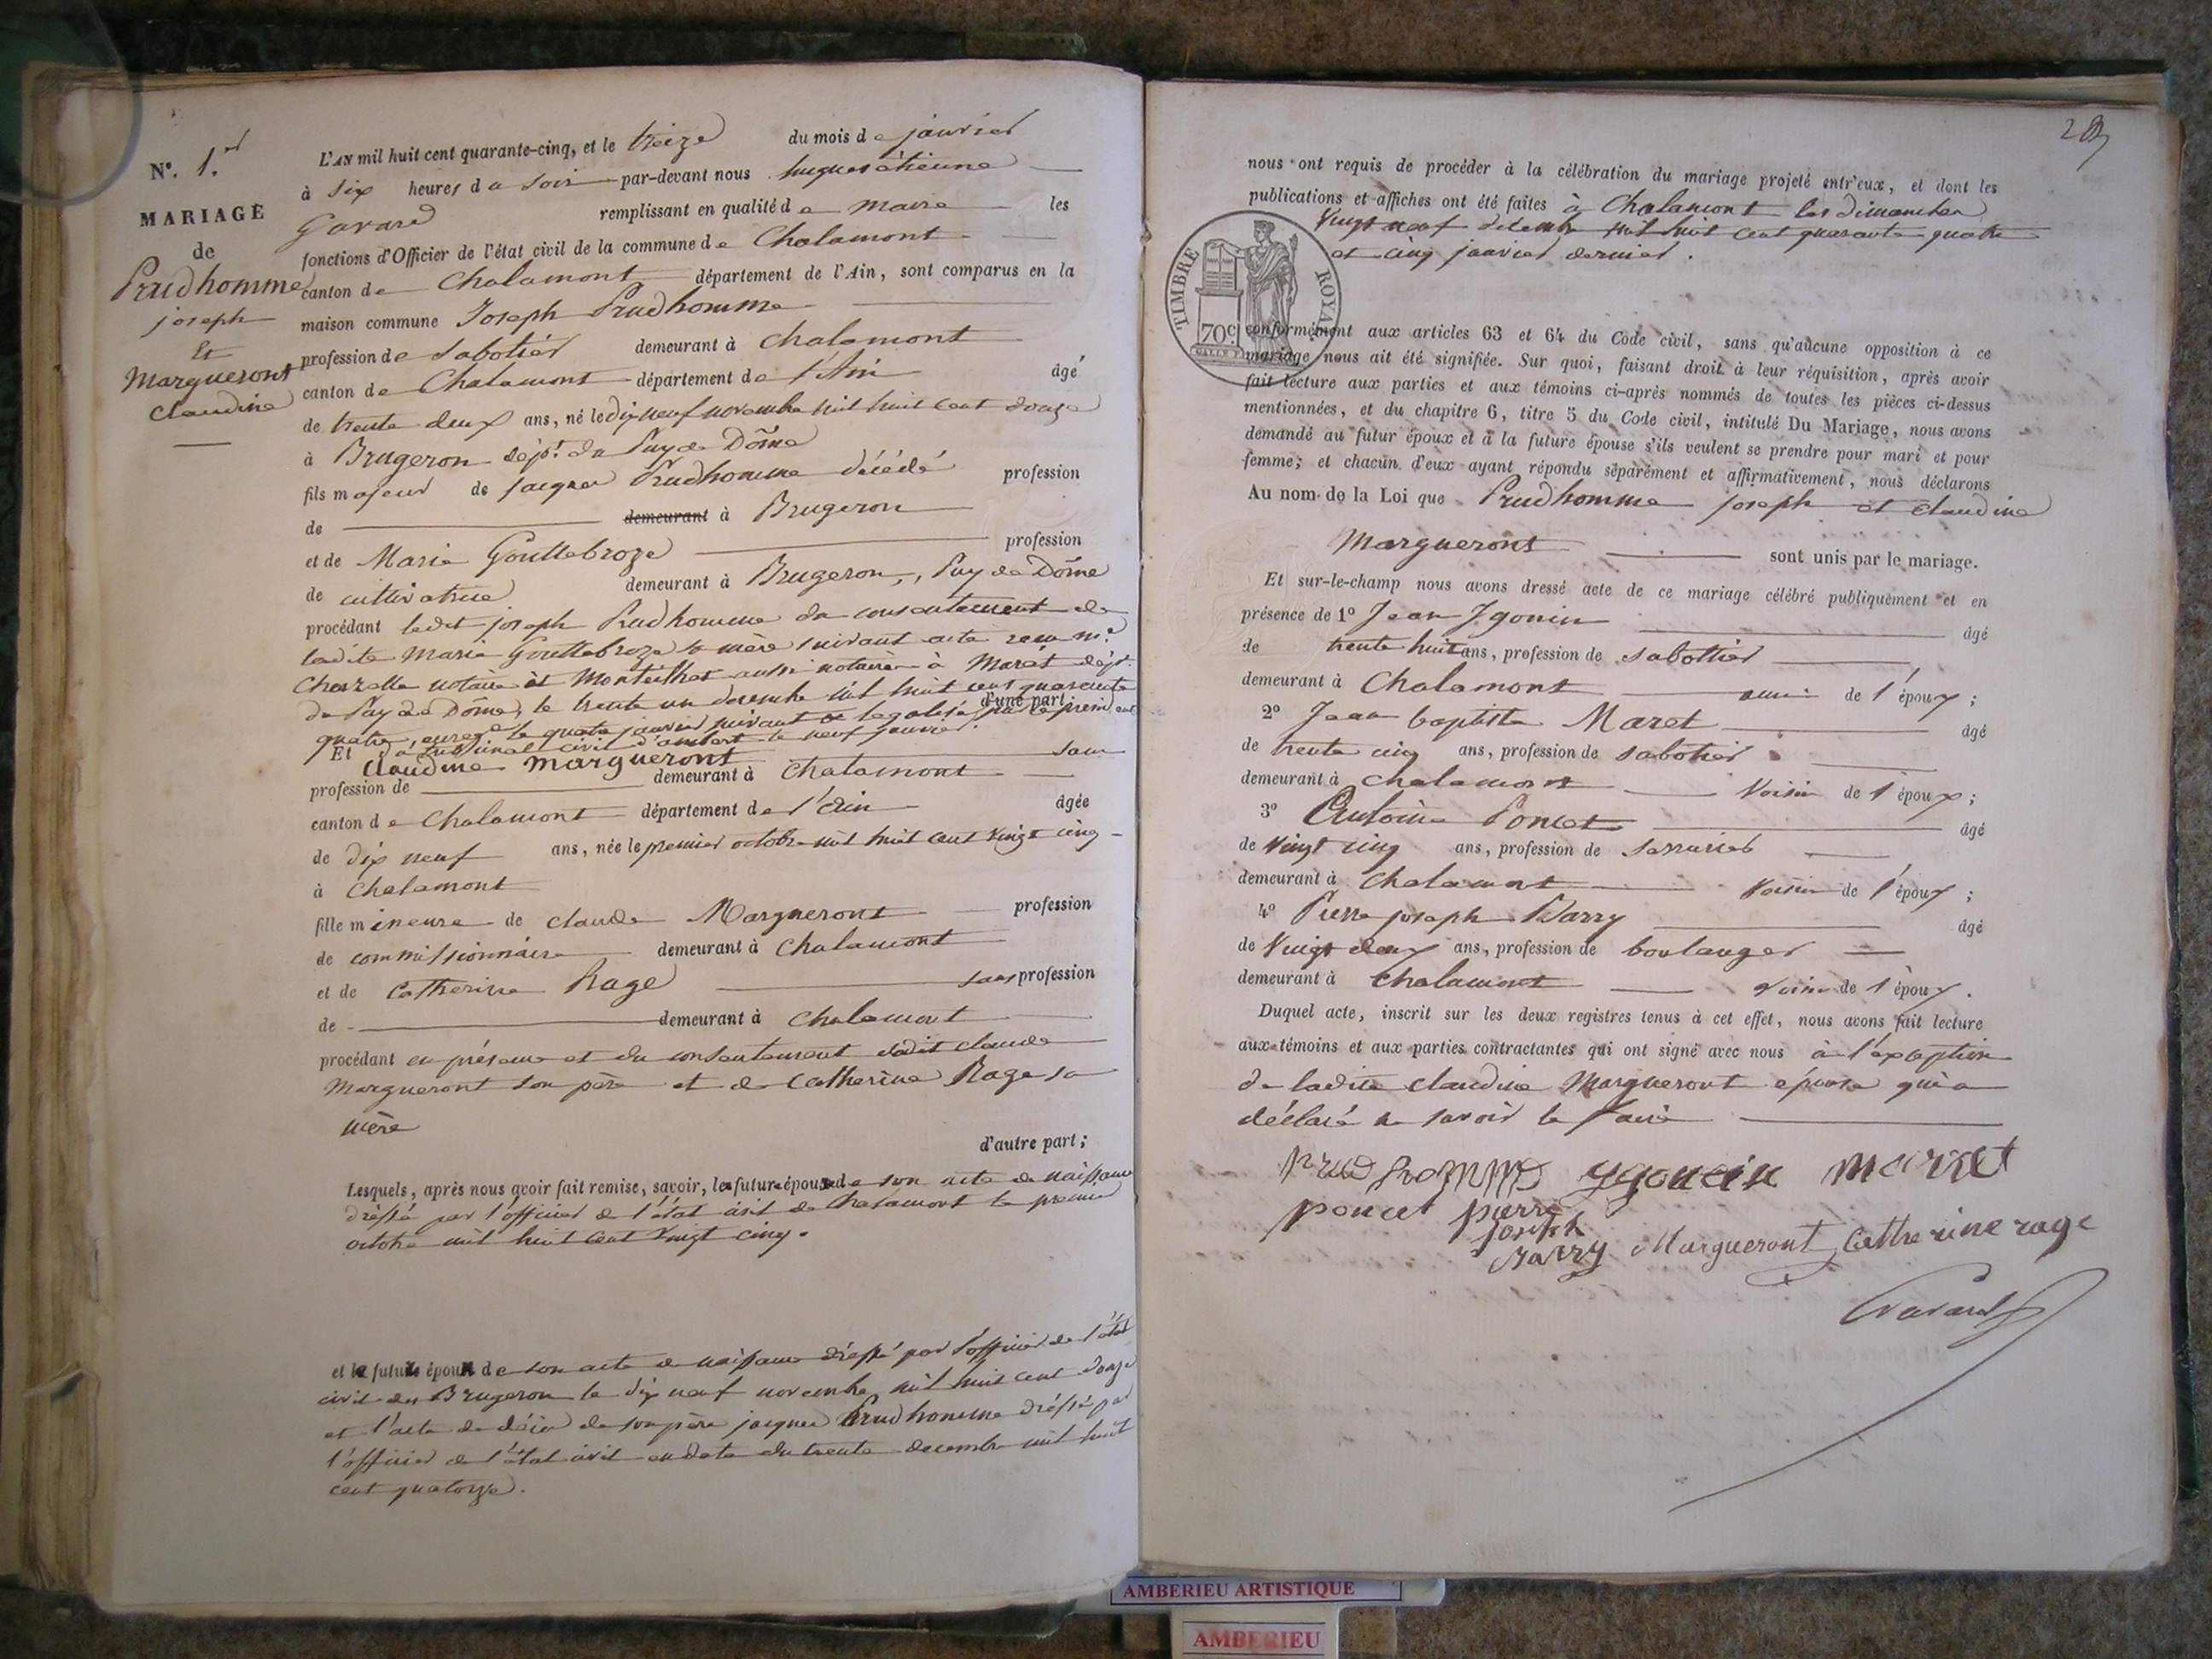 N°. 1.er
MARIAGE
de
Prudhomme
joseph
Et
Margueront
claudine
L'AN mil huit cent quarante-cinq, et le treize du mois de janvier
à six heures du soir par-devant nous hugues étienne
Gavard remplissant en qualité de maire les
fonctions d'Officier de l'état civil de la commune de Chalamont
canton de Chalamont département de l'Ain, sont comparus en la
maison commune Joseph Prudhomme
profession de sabotier demeurant à Chalamont
canton de Chalamont département de l'Ain âgé
de trente deux ans, né le dix neuf novembre mil huit cent douze
à Brugeron dépt. du Puy de Dôme
fils majeur de jacques Prudhomme décédé profession
de demeurant à Brugeron
et de Marie Gouttebroze profession
de cultivatrice demeurant à Brugeron, Puy de Dôme
procédant ledit joseph Prudhomme du consentement de
ladite Marie Gouttebroze sa mère suivant acte recu me.
notaire et Monteilhet aussi notaire à Marat dépt.
du Puy de Dôme, le trente un decembre mil huit cent quarante
d'une part.
quatre, enregé le quatre janvier suivant et legalisé par le president
du tribunal civil d'ambert le neuf janvier.
Et claudine Margueront sans
profession de demeurant à Chalamont
canton de Chalamont département de l'ain âgée
de dix neuf ans, née le premier octobre mil huit cent vingt cinq
à Chalamont
fille mineure de claude Margueront profession
de commissionnaire demeurant à Chalamont
et de Catherine Rage sans profession
de demeurant à Chalamont
procédant en présence et du consentement dudit claude
Margueront son père et de Catherine Rage sa
mère
d'autre part;
Lesquels, après nous avoir fait remise, savoir, la future épouse de son acte de naissance
dréssé par l'officier de l'état civil de Chalamont le premier
octobre mil huit cent vingt cinq.
et le futur époux de son acte de naissance dréssé par l'officier de l'état
civil du Brugeron le dix neuf novembre mil huit cent douze
et l'acte de décès de son père jacques Prudhomme dréssé par
l'officier de l'état civil en date du trente decembre mil huit
cent quatorze.
nous ont requis de procéder à la célébration du mariage projeté entr'eux, et dont les
publications et affiches ont été faites à Chalamont les dimanches
vingt neuf décembre mil huit cent quarante quatre
et cinq janvier dernier.
TIMBRE ROYAL
70c.
conformément aux articles 63 et 64 du Code civil, sans qu'aucune opposition à ce
mariage nous ait été signifiée. Sur quoi, faisant droit à leur réquisition, après avoir
fait lecture aux parties et aux témoins ci-après nommés de toutes les pièces ci-dessus
mentionnées, et du chapitre 6, titre 5 du Code civil, intitulé Du Mariage, nous avons
demandé au futur époux et à la future épouse s'ils veulent se prendre pour mari et pour
femme; et chacun d'eux ayant répondu séparément et affirmativement, nous déclarons
Au nom de la Loi que Prudhomme joseph et claudine
Margueront sont unis par le mariage.
Et sur-le-champ nous avons dressé acte de ce mariage célébré publiquement et en
présence de 1° Jean Ygonin âgé
de trente huit ans, profession de sabottier
demeurant à Chalamont ami de l'époux;
2° Jean baptiste Maret âgé
de trente cinq ans, profession de sabotier
demeurant à Chalamont voisin de l'époux;
3° Antoine Poncet âgé
de vingt cinq ans, profession de serrurier
demeurant à Chalamont voisin de l'époux;
4° Pierre joseph Darry âgé
de vingt deux ans, profession de boulanger
demeurant à Chalamont voisin de l'époux.
Duquel acte, inscrit sur les deux registres tenus à cet effet, nous avons fait lecture
aux témoins et aux parties contractantes qui ont signé avec nous à l'exception
de ladite claudine Margueront épouse qui a
déclaré ne savoir le faire
prudhomme ygonein maret
poncet pierre
joseph
darry Margueront Catherine rage
Gavard
AMBERIEU ARTISTIQUE
AMBERIEU